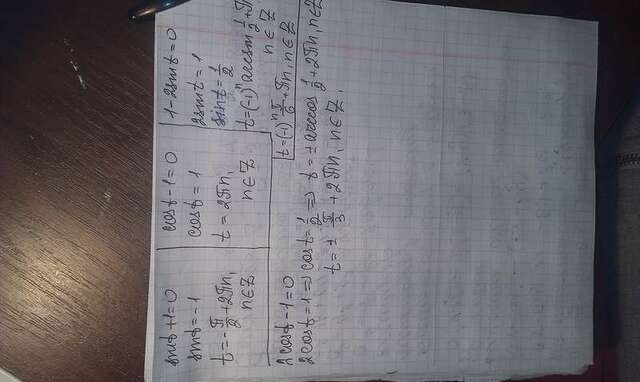 sint+1=0
sint=-1
t=-π/2+2πn,
n∈Z
cost-1=0
cost=1
t=2πn,
n∈Z
1-2sint=0
2sint=1
sint=1/2
t=(-1)ⁿarcsin 1/2+π
n∈Z
t=(-1)ⁿ π/6+πn, n∈Z
2cost-1=0
2cost=1=>cost=1/2=>t=±arccos 1/2+2πn, n∈Z
t=±π/3+2πn, n∈Z.